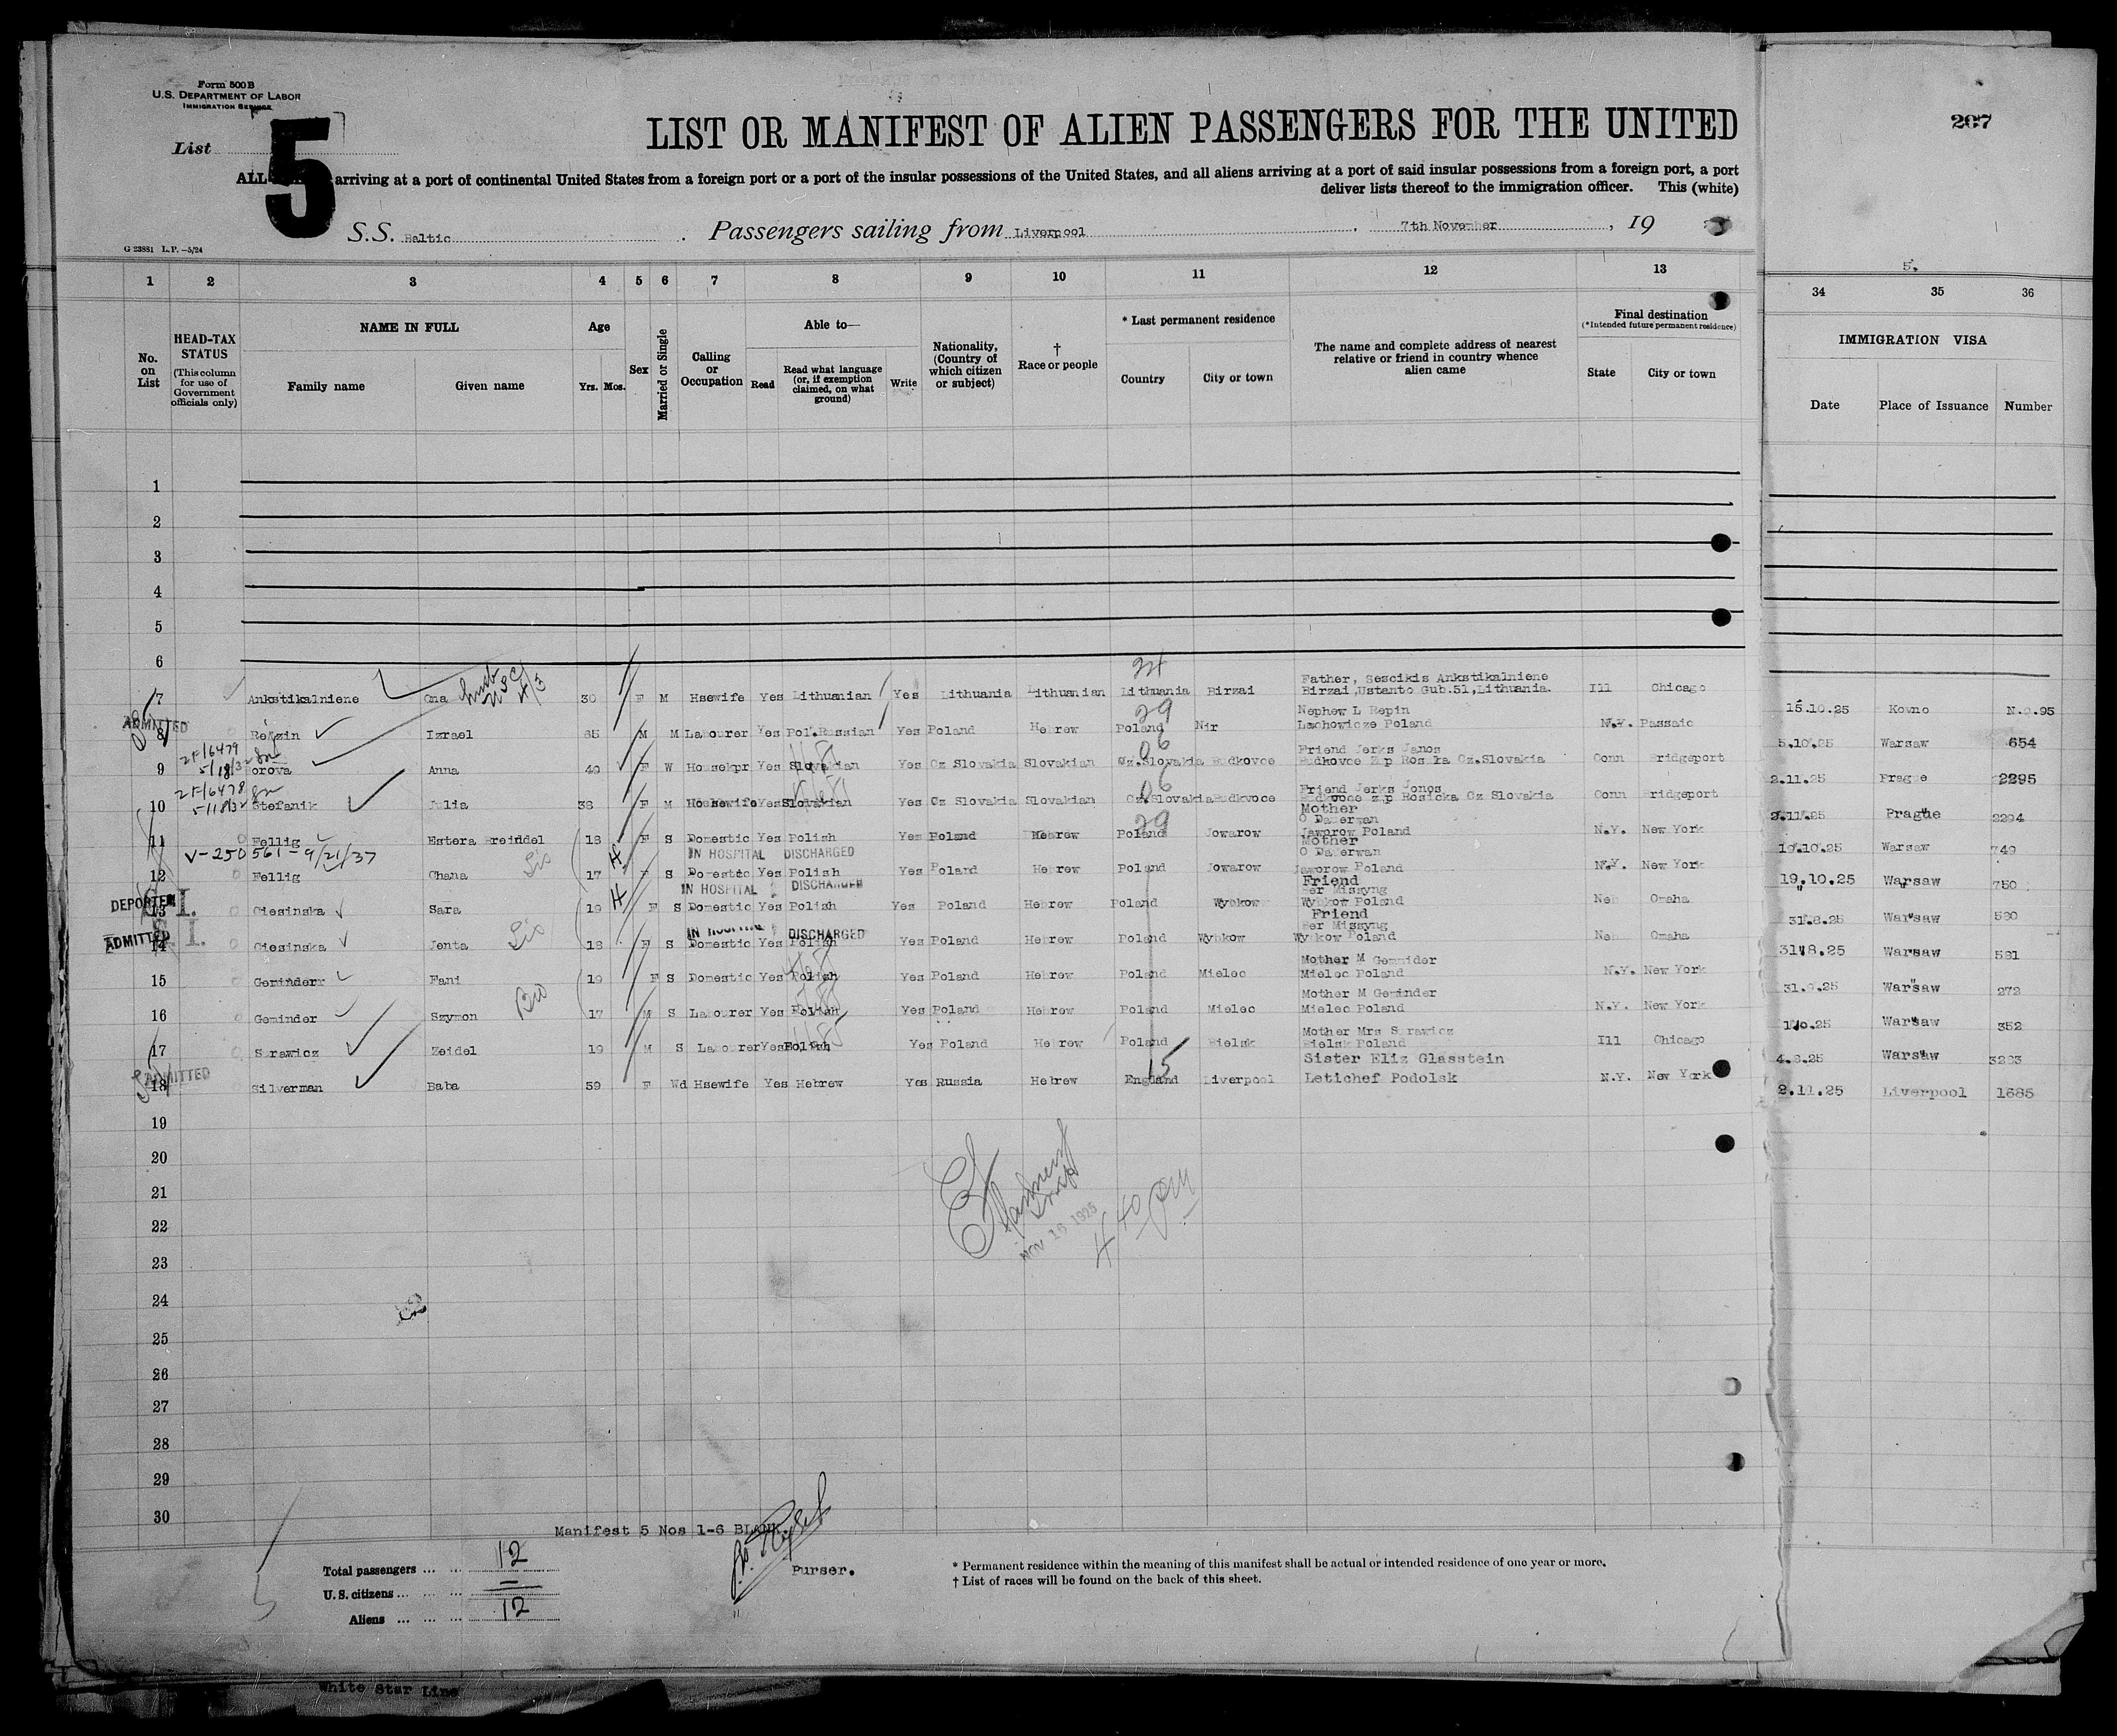 Form 500 B
U.S. DEPARTMENT OF LABOR
IMMIGRATION SERVICE
List 5
267
LIST OR MANIFEST OF ALIEN PASSENGERS FOR THE UNITED
ALL arriving at a port of continental United States from a foreign port or a port of the insular possessions of the United States, and all aliens arriving at a port of said insular possessions from a foreign port, a port
deliver lists thereof to the immigration officer. This (white)
S.S. Baltic Passengers sailing from Liverpool 7th November, 19
G 23881 L.P.—5/24
5.
1 2 3 4 5 6 7 8 9 10 11 12 13 34 35 36
No. on List
HEAD-TAX STATUS (This column for use of Government officials only)
NAME IN FULL Family name Given name
Age Yrs. Mos.
Sex
Married or Single
Calling or Occupation
Able to— Read Read what language (or, if exemption claimed, on what ground) Write
Nationality, (Country of which citizen or subject)
† Race or people
* Last permanent residence Country City or town
The name and complete address of nearest relative or friend in country whence alien came
Final destination (*Intended future permanent residence) State City or town
IMMIGRATION VISA Date Place of Issuance Number
1
2
3
4
5
6
24
7 Ankstikalniene Ona 30 F M Hsewife Yes Lithuanian Yes Lithuania Lithuanian Lithuania Birzai Father, Sescikis Ankstikalniene Birzai, Ustanto Gub.51, Lithuania. Ill Chicago 15.10.25 Kovno
29
ADMITTED
8 Izrael 65 M M Labourer Yes Pol.Russian Yes Poland Hebrew Poland Nir Nephew L Repin Lechowicze Poland N.Y. Passaic 5.10.25 Warsaw 654
06
2F/6479
5/18/32
9 orova Anna 40 F W Housekpr Yes Slovakian Yes Cz Slovakia Slovakian Cz.Slovakia Budkovce Friend Jerks Janos Budkovce Cz.Slovakia Conn Bridgeport 2.11.25 Prague 2295
06
2F/6478
5/18/32
10 Stefanik Julia 38 F M Housewife Yes Slovakian Yes Cz Slovakia Slovakian Cz.Slovakia Budkvoce Friend Jerks Jonos Budkvoce Zp Rosicka Cz Slovakia Conn Bridgeport 2.11.25 Prague 2294
29
11 Fellig Estera Breindel 18 F S Domestic Yes Polish Yes Poland Hebrew Poland Jowarow Mother O Daberwan Jaworow Poland N.Y. New York 19.10.25 Warsaw 749
V-250561-9/21/37
IN HOSPITAL DISCHARGED
12 Fellig Chana 17 F S Domestic Yes Polish Yes Poland Hebrew Poland Jowarow Mother O Daberwan Jaworow Poland N.Y. New York 19.10.25 Warsaw 750
IN HOSPITAL DISCHARGED
DEPORTED S.I.
13 Ciesinska Sara 19 F S Domestic Yes Polish Yes Poland Hebrew Poland Wybkow Friend Ber Missyng Wybkow Poland Neb Omaha 31.8.25 Warsaw 580
IN HOSPITAL DISCHARGED
ADMITTED S.I.
14 Ciesinska Jenta 18 F S Domestic Yes Polish Yes Poland Hebrew Poland Wybkow Friend Ber Missyng Wybkow Poland Neb Omaha 31.8.25 Warsaw 581
15 Geminderr Fani 19 F S Domestic Yes Polish Yes Poland Hebrew Poland Mielec Mother M Gemnider Mielec Poland N.Y. New York 31.9.25 Warsaw 272
16 Geminder Szymon 17 M S Labourer Yes Polish Yes Poland Hebrew Poland Mielec Mother M Geminder Mielec Poland N.Y. New York Warsaw 352
17 Surawicz Zeidel 19 M S Labourer Yes Polish Yes Poland Hebrew Poland Bielsk Mother Mrs Surawicz Bielsk Poland Ill Chicago 4.8.25 Warsaw
15
ADMITTED
18 Silverman Baba 59 F Wd Hsewife Yes Hebrew Yes Russia Hebrew England Liverpool Sister Eliz Glasstein Letichef Podolsk N.Y. New York 2.11.25 Liverpool 1685
19
20
21
22
23
24
25
26
27
28
29
30
NOV 16 1925
4 40 PM
Manifest 5 Nos 1-6 BLANK.
Purser.
Total passengers ... ... 12
U.S. citizens ... ... —
Aliens ... ... ... 12
* Permanent residence within the meaning of this manifest shall be actual or intended residence of one year or more.
† List of races will be found on the back of this sheet.
White Star Line